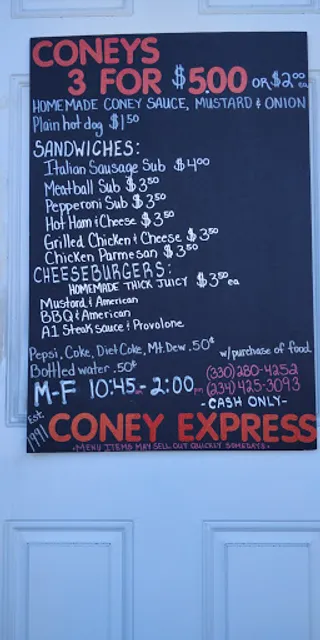 CONEYS
3 FOR $5.00 OR $2.00 ea
HOMEMADE CONEY SAUCE, MUSTARD & ONION
Plain hot dog $1.50
SANDWICHES:
Italian Sausage Sub $4.00
Meatball Sub $3.50
Pepperoni Sub $3.50
Hot Ham & Cheese $3.50
Grilled Chicken & Cheese $3.50
Chicken Parmesan $3.50
CHEESEBURGERS:
HOMEMADE THICK JUICY $3.50 ea
Mustard & American
BBQ & American
A1 Steak sauce & Provolone
Pepsi, Coke, Diet Coke, Mt. Dew .50¢ w/purchase of food
Bottled water .50¢ (330) 280-4252
M-F 10:45am-2:00pm (234) 425-3093
-CASH ONLY-
Est. 1991 CONEY EXPRESS
-MENU ITEMS MAY SELL OUT QUICKLY SOMEDAYS-